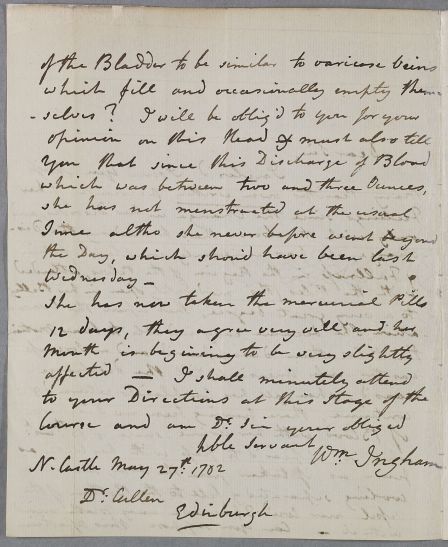 of the Bladder to be similar to varicose veins
which fill and occasionally empty them
-selves? I will be oblig'd to you for your
opinion on this Head & must also tell
you that since this Discharge of Blood
which was between two and three Ounces,
she has not menstruated at the usual
Time altho she never before went beyond
the Day, which should have been last
Wednesday —
She has now taken the mercurial Pills
12 days, they agree very well and her
Mouth is beginning to be very slightly
affected — I shall minutely attend
to your Directions at this stage of the
Course and am Dr. Sir your obliged
hble Servant
Wm Ingham
N. Castle May 27th. 1782
Dr. Cullen
Edinburgh